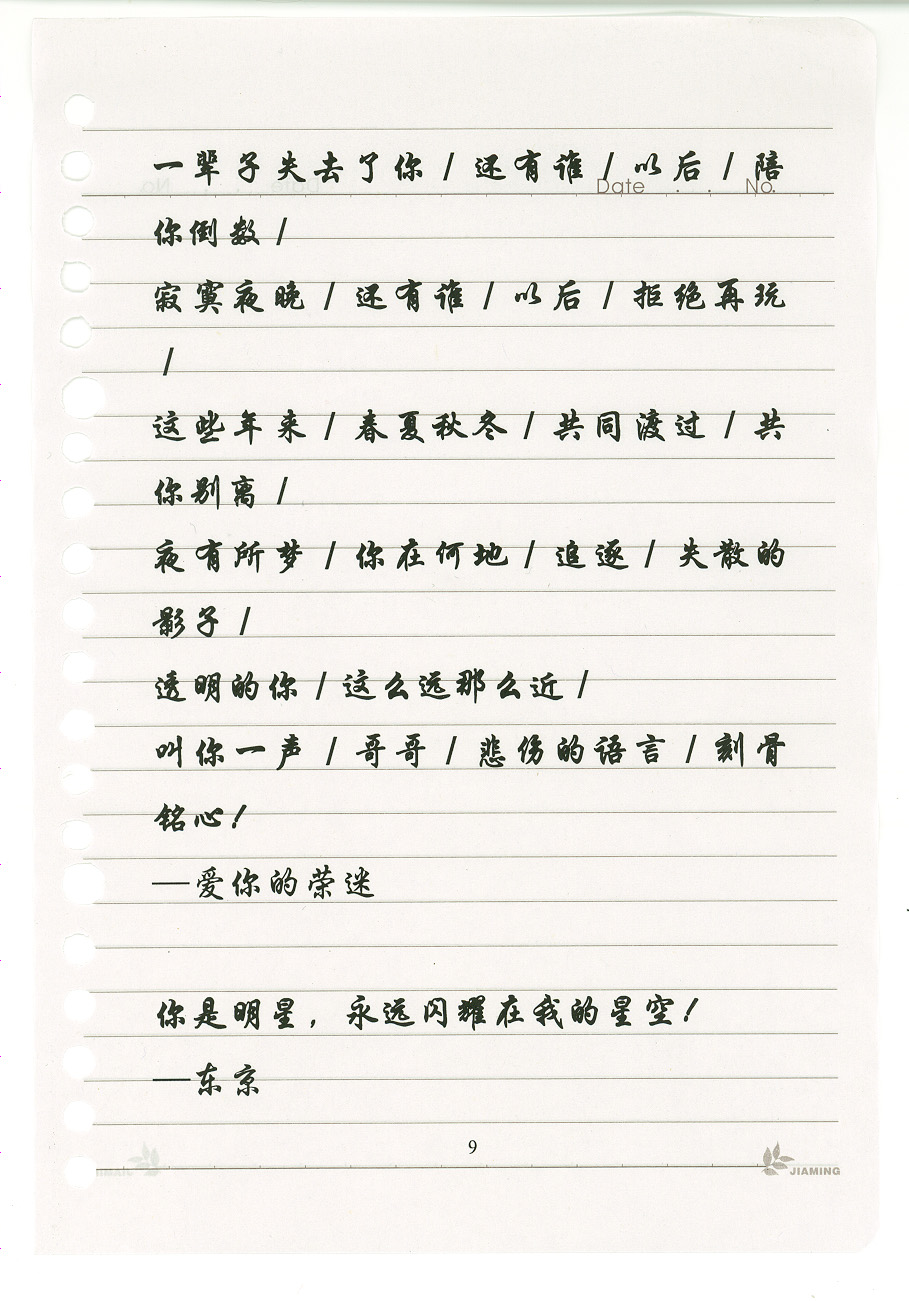 一辈子失去了你 / 还有谁 / 以后 / 陪
Date . . No.
你倒数 /
寂寞夜晚 / 还有谁 / 以后 / 拒绝再玩
/
这些年来 / 春夏秋冬 / 共同渡过 / 共
你别离 /
夜有所梦 / 你在何地 / 追逐 / 失散的
影子 /
透明的你 / 这么远那么近 /
叫你一声 / 哥哥 / 悲伤的语言 / 刻骨
铭心！
—爱你的荣迷
你是明星，永远闪耀在我的星空！
—东京
9
JIAMING